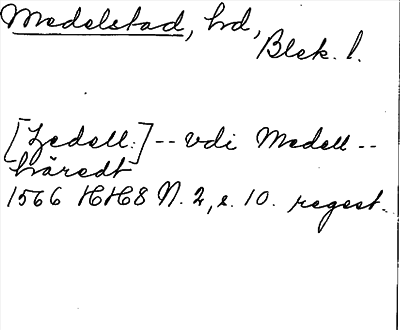 Medelstad, hd,
Blek. l.
[Zedell:] -- vdi Medell --
häredt
1566 HH8 N. 2, s. 10. regest.